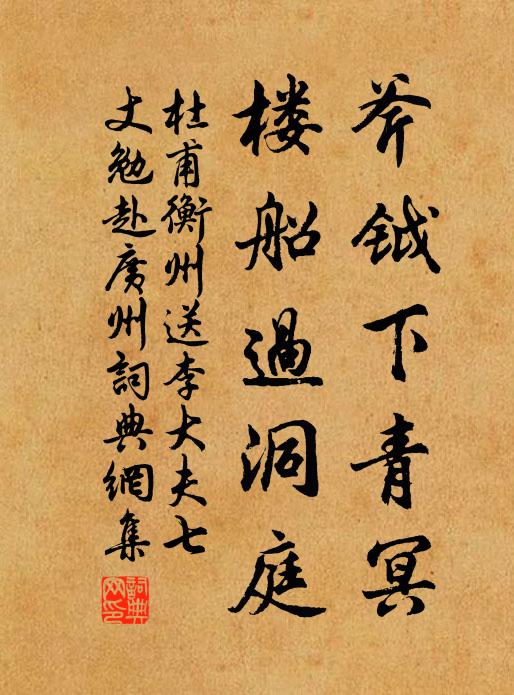 斧鉞下青冥
楼船過洞庭
杜甫衡州送李大夫七
丈勉赴廣州詞典網集
詞典
网印